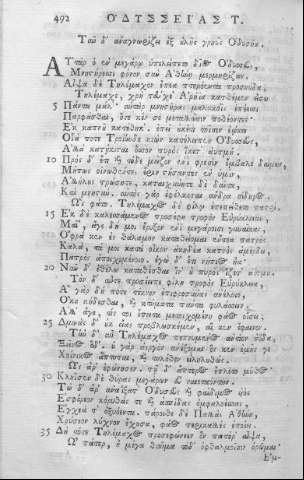 492 ὈΔΥΣΣΕΙΑΣ Τ.
Τοῦ δ' ἀναγνωρίζει ἐξ οὐλῆς γρηῦς Ὀδυσῆα.
ΑΥτὰρ ὁ ἐν μεγάρῳ ὑπελείπετο δῖος Ὀδυσσεὺς,
Μνηστήρεσσι φόνον σὺν Ἀθήνῃ μερμηρίζων.
Αἶψα δὲ Τηλέμαχον ἔπεα πτερόεντα προσηύδα,
Τηλέμαχε, χρὴ τεύχε' Ἀρήϊα κατθέμεν εἴσω
5 Πάντα μάλ'· αὐτὰρ μνηστῆρας μαλακοῖς ἐπέεσσι
Παρφάσθαι, ὅτε κέν σε μεταλλῶσιν ποθέοντες·
Ἐκ καπνοῦ κατέθηκ'· ἐπεὶ οὐκέτι τοῖσιν ἐῴκει
Οἷά ποτε Τροίηνδε κιὼν κατέλειπεν Ὀδυσσεὺς,
Ἀλλὰ κατῄκισται ὅσσον πυρὸς ἵκετ' ἀϋτμή.
10 Πρὸς δ' ἔτι καὶ τόδε μεῖζον ἐνὶ φρεσὶν ἔμβαλε δαίμων,
Μήπως οἰνωθέντες ἔριν στήσαντες ἐν ὑμῖν,
Ἀλλήλους τρώσητε, καταισχύνητέ τε δαῖτα,
Καὶ μνηστύν. αὐτὸς γὰρ ἐφέλκεται ἄνδρα σίδηρος.
Ὣς φάτο. Τηλέμαχος δὲ φίλῳ ἐπεπείθετο πατρί.
15 Ἐκ δὲ καλεσσάμενος προσέφη τροφὸν Εὐρύκλειαν·
Μαῖ', ἄγε δή μοι ἔρυξον ἐνὶ μεγάροισι γυναῖκας,
Ὄφρα κεν ἐς θάλαμον καταθείομαι ἔντεα πατρὸς
Καλὰ, τά μοι κατὰ οἶκον ἀκηδέα καπνὸς ἀμέρδει,
Πατρὸς ἀποιχομένοιο. ἐγὼ δ' ἔτι νήπιος ἦα·
20 Νῦν δ' ἐθέλω καταθέσθαι ἵν' οὐ πυρὸς ἵξετ' ἀϋτμή.
Τὸν δ' αὖτε προσέειπε φίλη τροφὸς Εὐρύκλεια,
Αἲ γὰρ δή ποτε τέκνον ἐπιφροσύνας ἀνέλοιο,
Οἴκου κήδεσθαι, καὶ κτήματα πάντα φυλάσσειν.
Ἀλλ' ἄγε, τίς τοι ἔπειτα μετοιχομένη φάος οἴσει;
25 Δμωὰς δ' οὐκ εἴας προβλωσκέμεν, αἵ κεν ἔφαινον.
Τὴν δ' αὖ Τηλέμαχος πεπνυμένος ἀντίον ηὔδα,
Ξεῖνος ὅδ'. οὐ γὰρ ἀεργὸν ἀνέξομαι ὅς κεν ἐμῆς γε
Χοίνικος ἅπτηται, καὶ τηλόθεν εἰληλουθώς.
Ὣς ἄρ' ἐφώνησεν. τῇ δ' ἄπτερος ἔπλετο μῦθος·
30 Κλήϊσεν δὲ θύρας μεγάρων εὖ ναιεταόντων.
Τὼ δ' ἄρ' ἀναΐξαντ' Ὀδυσεὺς καὶ φαίδιμος υἱὸς
Ἐσφόρεον κόρυθάς τε καὶ ἀσπίδας ὀμφαλοέσσας,
Ἔγχεά τ' ὀξυόεντα. πάροιθε δὲ Παλλὰς Ἀθήνη,
Χρύσεον λύχνον ἔχουσα, φάος περικαλλὲς ἐποίει.
35 Δὴ τότε Τηλέμαχος προσεφώνεεν ὃν πατέρ' αἶψα,
Ὦ πάτερ, ἦ μέγα θαῦμα τόδ' ὀφθαλμοῖσιν ὁρῶμαι·
Ἔμ-